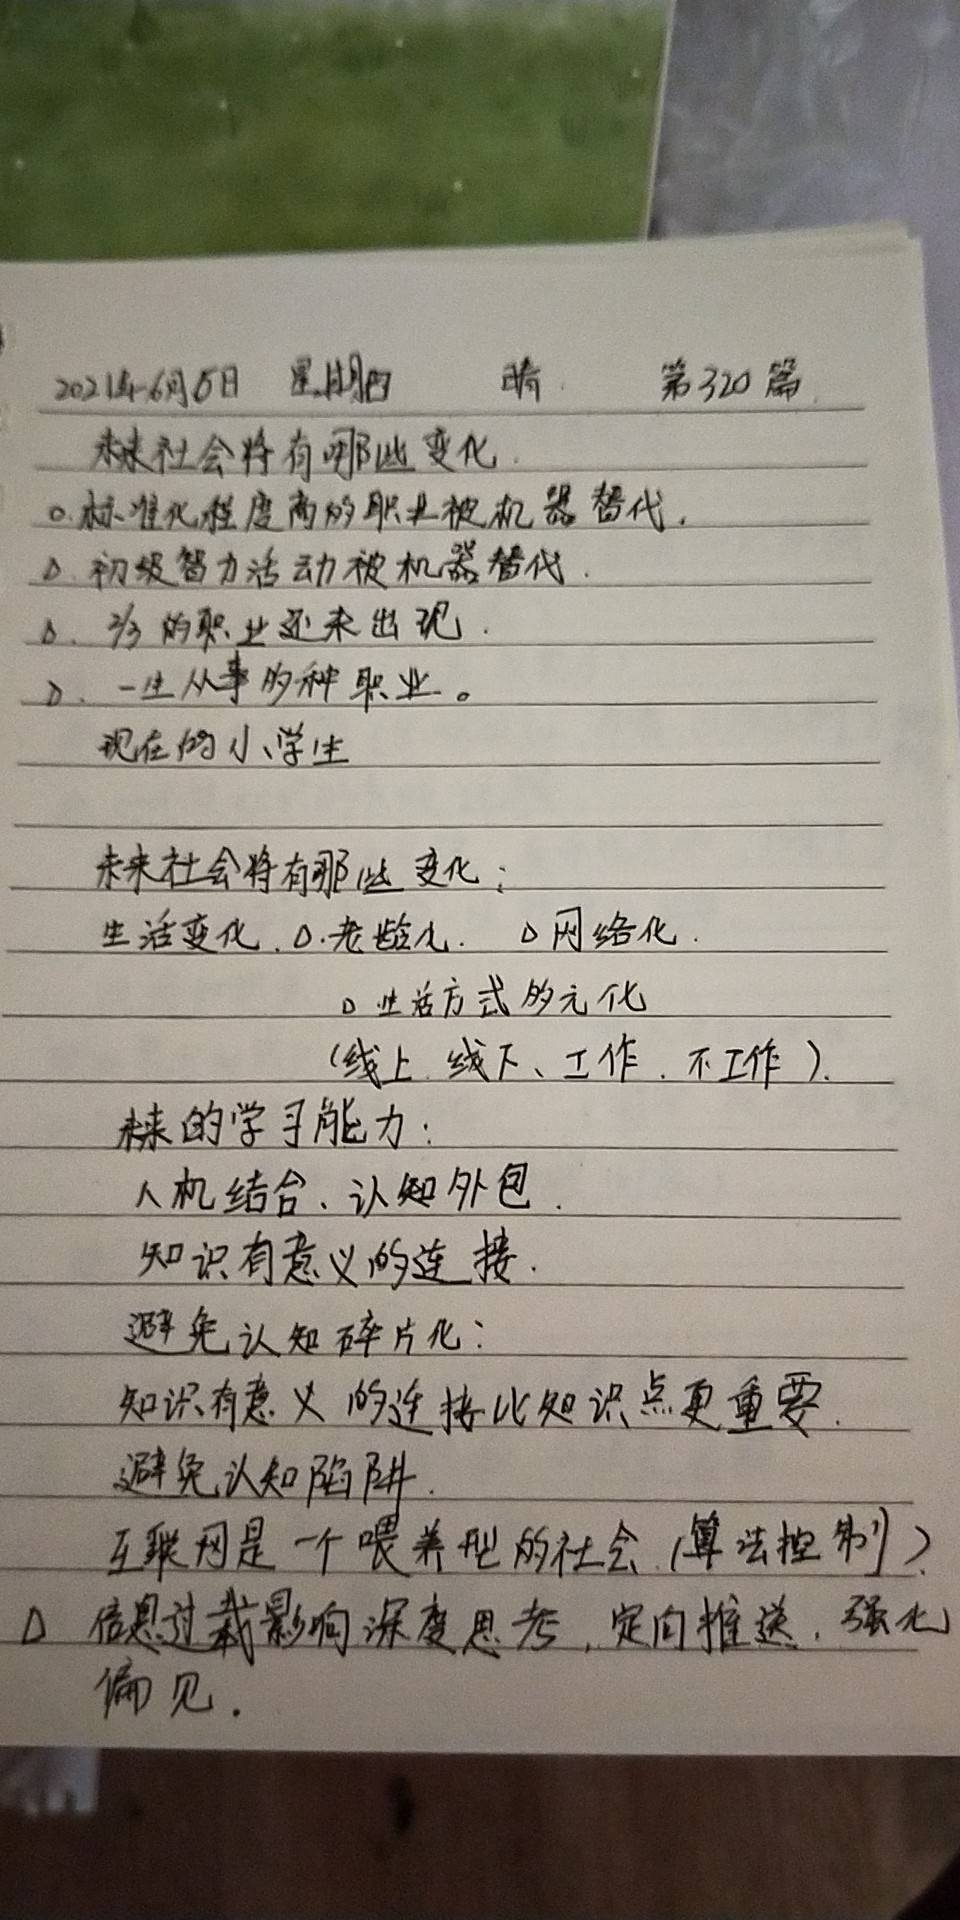 2021年6月5日 星期四 晴. 第320篇.
未来社会将有哪些变化.
o.标准化程度高的职业被机器替代.
D.初级智力活动被机器替代.
D. 2/3的职业还未出现.
D. 一生从事多种职业。
现在的小学生
未来社会将有那些变化:
生活变化.D.老龄化. D网络化.
D生活方式多元化
(线上.线下、工作.不工作).
未来的学习能力:
人机结合、认知外包.
知识有意义的连接.
避免认知碎片化:
知识有意义的连接比知识点更重要.
避免认知陷阱.
互联网是一个喂养型的社会.(算法控制).
D 信息过载影响深度思考,定向推送.强化
偏见.